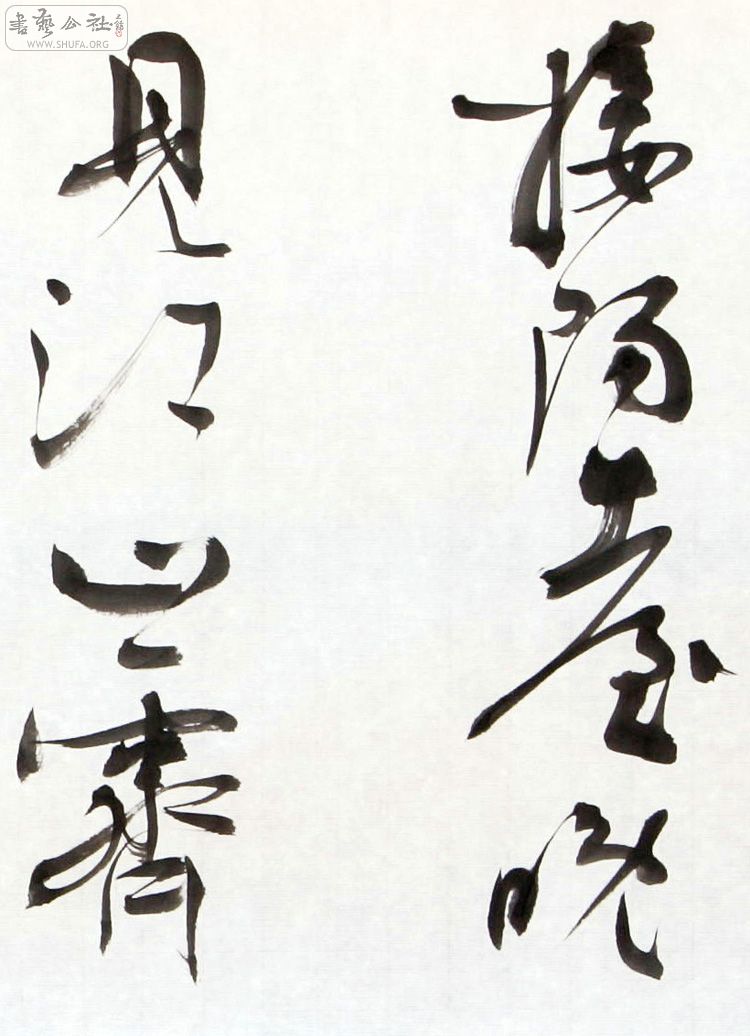 書藝公社
WWW.SHUFA.ORG
接陽臺晚
見江山霽